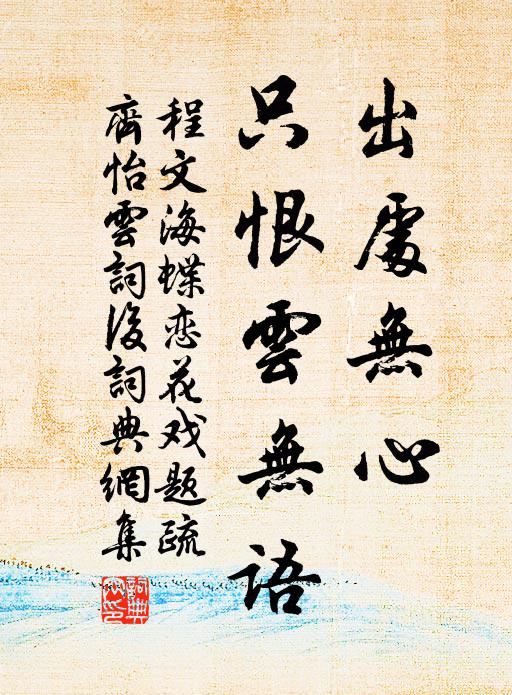 出處無心
只恨雲無语
程文海蝶恋花戏题疏
齋怡雲詞后詞典網集
詞典